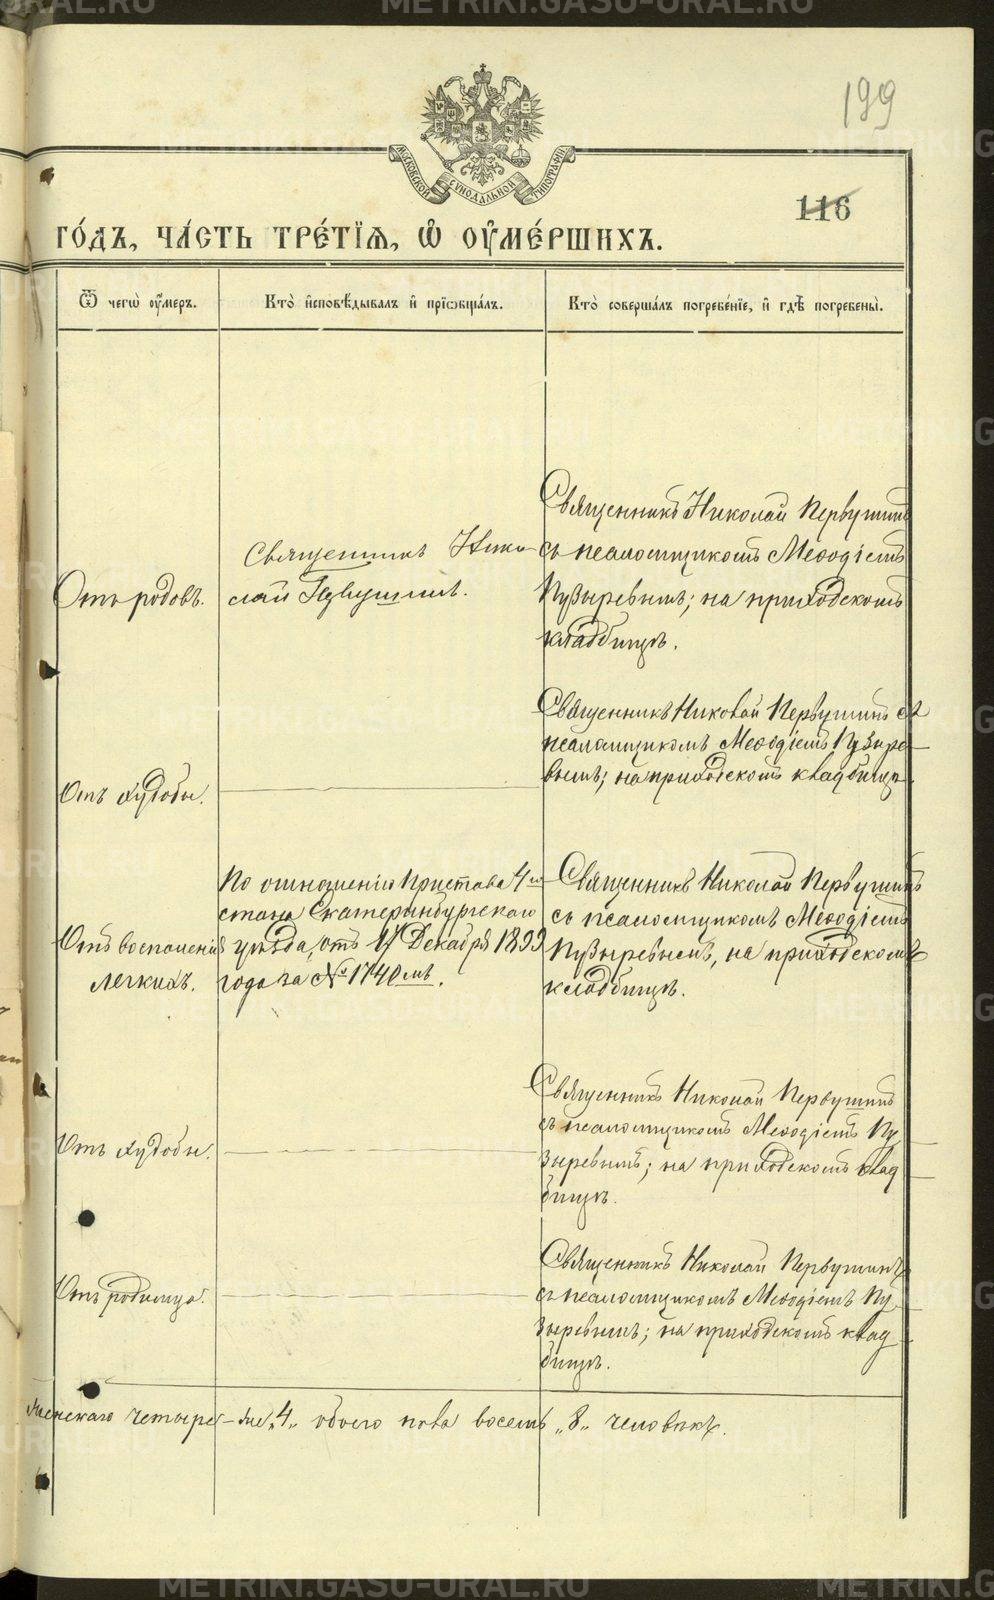 METRIKI.GASU-URAL.RU
199
МОСКОВСКОЙ СѴНОДАЛЬНОЙ ТИПОГРАФІИ
116
ГО́ДЪ, ЧА́СТЬ ТРЕ́ТІѦ, Ѽ ОУ҆МЕ́РШИХЪ.
Ѿ чегѡ̀ оу҆́мер. Кто̀ и҆сповѣ́дывалъ и҆ прїѡбща́лъ. Кто̀ соверша́лъ погребе́нїе, и҆ гдѣ̀ погребены̀.
Отъ родовъ.
Священникъ Нико-
лай Первушинъ.
Священникъ Николай Первушинъ
съ псаломщикомъ Меѳодіемъ
Пузыревымъ; на приходскомъ
кладбищѣ.
Отъ худобы.
Священникъ Николай Первушинъ съ
псаломщикомъ Меѳодіемъ Пузыре-
вымъ; на приходскомъ кладбищѣ.
Отъ воспаленія
легкихъ.
По отношенію Пристава 4го
стана Екатеринбургскаго
уѣзда, отъ 17 Декабря 1899
года за № 1740мъ.
Священникъ Николай Первушинъ
съ псаломщикомъ Меѳодіемъ
Пузыревымъ, на приходскомъ
кладбищѣ.
Отъ худобы.
Священникъ Николай Первушинъ
съ псаломщикомъ Меѳодіемъ Пу-
зыревымъ; на приходскомъ клад-
бищѣ.
Отъ родимца.
Священникъ Николай Первушинъ
съ псаломщикомъ Меѳодіемъ Пу-
зыревымъ; на приходскомъ клад-
бищѣ.
женскаго четыре „4„ обоего пола восемь „8„ человѣкъ.